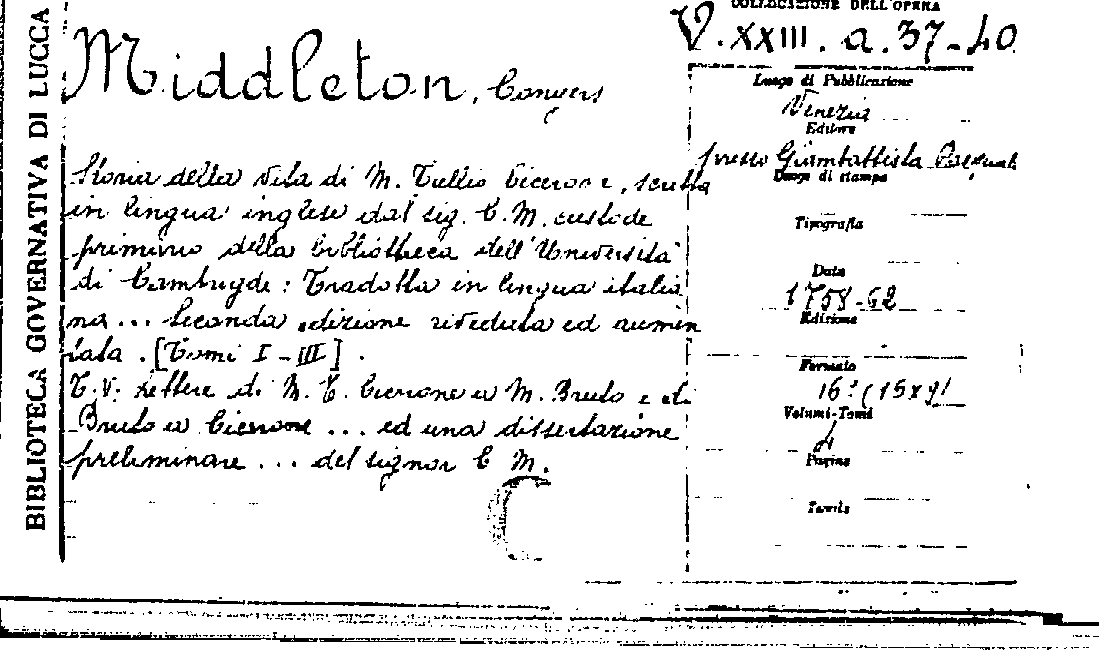 BIBLIOTECA GOVERNATIVA DI LUCCA
Middleton, Conyers
Storia della vita di M. Tullio Cicerone, scritta
in lingua inglese dal sig. C. M. custode
primario della bibliotheca dell'Università
di Cambrygde: Tradotta in lingua italia
na... Seconda edizione riveduta ed aumen
tata. [Tomi I-III].
T. V: Lettere di M. T. Cicerone a M. Bruto e di
Bruto a Cicerone ... ed una dissertazione
preliminare ... del signor C M.
C
COLLOCAZIONE DELL'OPERA
V. XXIII. a. 37-40
Luogo di Pubblicazione
Venezia
Editore
presso Giambattista Pasquali
Luogo di stampa
Tipografia
Data
1758-62
Edizione
Formato
16° (15x9)
Volumi-Tomi
4
Pagine
Tavole